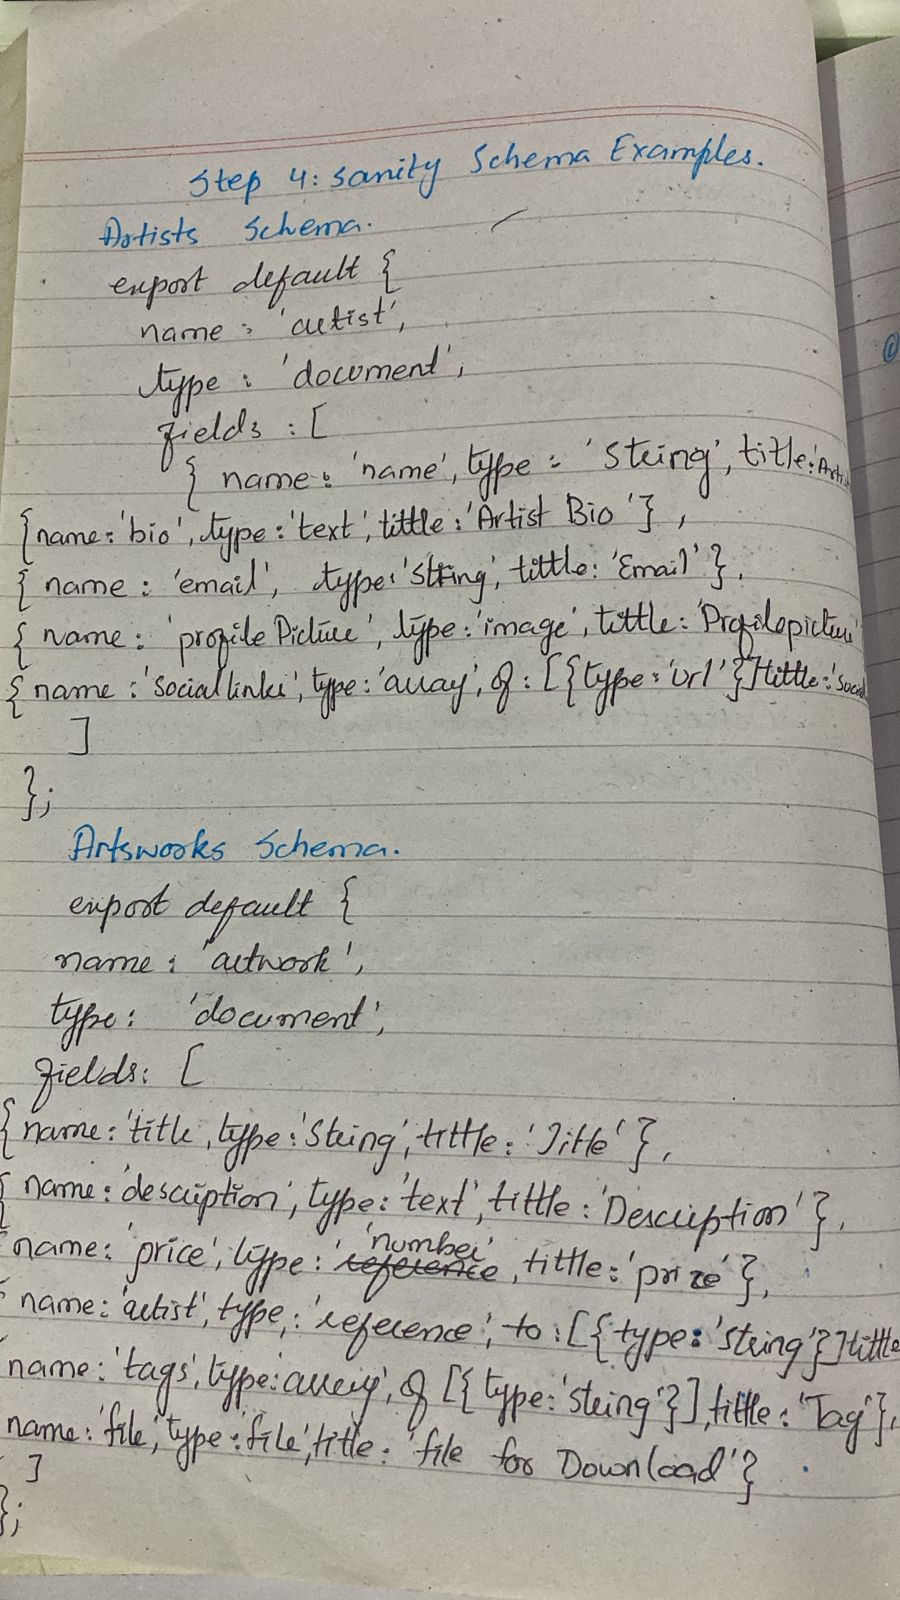 Step 4: Sanity Schema Examples.
Artists Schema.
export default {
name : 'artist',
type : 'document',
fields : [
{ name : 'name', type : 'string', title :'Arti
{name:'bio', type:'text', tittle :'Artist Bio'} ,
{ name : 'email', type:'string', tittle: 'Email' },
{ name : 'profile Picture', type:'image', tittle: 'Profilepicture'
{ name :'sociallinks', type: 'array', of : [{type: 'url'}] tittle:'social
]
};
Artsworks Schema.
export default {
name : 'artwork',
type: 'document',
fields: [
{ name:'title, type:'string', tittle : 'Title' },
{ name: 'description', type: 'text', tittle : 'Description' },
name: 'price', type: 'number', tittle: 'prize' },
name: 'artist', type,: 'reference', to : [{type: 'string'}] tittle
name: 'tags', type: array', of [{type: 'string'}], tittle : 'Tag'},
name: 'file', type : file', title: 'file for Download'}
]
};